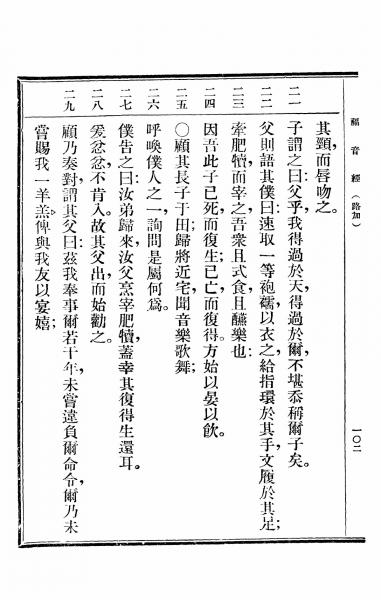 福音經（路加）
一〇二
其頸而脣吻之。
二一 子謂之曰：父乎，我得過於天，得過於爾，不堪忝稱爾子矣。
二二 父則語其僕曰：速取一等袍襦以衣之，給指環於其手，文履於其足；
二三 牽肥犢而宰之，吾衆且式食且醼樂也：
二四 因吾此子已死，而復生；已亡而復得。方始以晏以飲。
二五 〇顧其長子于田；歸將近宅，聞音樂歌舞；
二六 呼喚僕人之一，詢問是屬何爲。
二七 僕告之曰：汝弟歸來，汝父烹宰肥犢，蓋幸其復得生還耳。
二八 爰忿忿，不肯入。故其父出而始勸之。
二九 顧乃奏對，謂其父曰：茲我奉事爾若干年，未嘗違負爾命令，爾乃未
嘗賜我一羊羔，俾與我友以宴嬉；